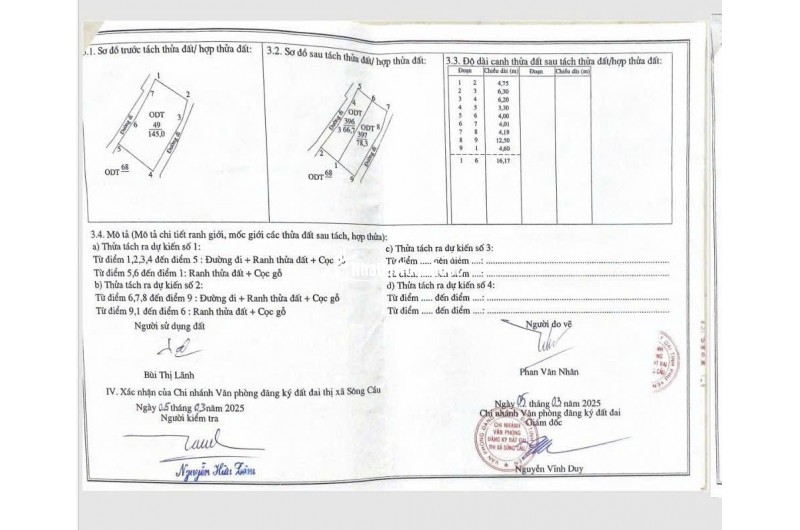 3.1. Sơ đồ trước tách thửa đất/ hợp thửa đất:
1
7
2
ODT
49
145,0
3
6
Đường đi
Đường đi
5
4
ODT 68
3.2. Sơ đồ sau tách thửa đất/ hợp thửa đất:
5
6
4
7
ODT
396
66,7
3
ODT 8
397
78,3
Đường đi
Đường đi
2
1
9
ODT 68
3.3. Độ dài cạnh thửa đất sau tách thửa đất/hợp thửa đất:
Đoạn Chiều dài (m) Đoạn Chiều dài (m)
1 2 4,75
2 3 6,30
3 4 6,20
4 5 3,30
5 6 4,00
6 7 4,01
7 8 4,19
8 9 12,50
9 1 4,60
1 6 16,17
3.4. Mô tả (Mô tả chi tiết ranh giới, mốc giới các thửa đất sau tách, hợp thửa):
a) Thửa tách ra dự kiến số 1:
Từ điểm 1,2,3,4 đến điểm 5 : Đường đi + Ranh thửa đất + Cọc gỗ
Từ điểm 5,6 đến điểm 1: Ranh thửa đất + Cọc gỗ
b) Thửa tách ra dự kiến số 2:
Từ điểm 6,7,8 đến điểm 9 : Đường đi + Ranh thửa đất + Cọc gỗ
Từ điểm 9,1 đến điểm 6 : Ranh thửa đất + Cọc gỗ
c) Thửa tách ra dự kiến số 3:
Từ điểm ..... đến điểm ....:
Từ điểm ..... đến điểm ....:
d) Thửa tách ra dự kiến số 4:
Từ điểm ..... đến điểm ....:
Từ điểm ..... đến điểm ....:
Người sử dụng đất
Bùi Thị Lãnh
Người đo vẽ
Phan Văn Nhân
IV. Xác nhận của Chi nhánh Văn phòng đăng ký đất đai thị xã Sông Cầu
Ngày 05 tháng 03 năm 2025
Người kiểm tra
Nguyễn Hữu
Ngày 05 tháng 03 năm 2025
Chi nhánh Văn phòng đăng ký đất đai
Giám đốc
CHI NHÁNH
VĂN PHÒNG
ĐĂNG KÝ ĐẤT ĐAI
THỊ XÃ SÔNG CẦU
Nguyễn Vĩnh Duy